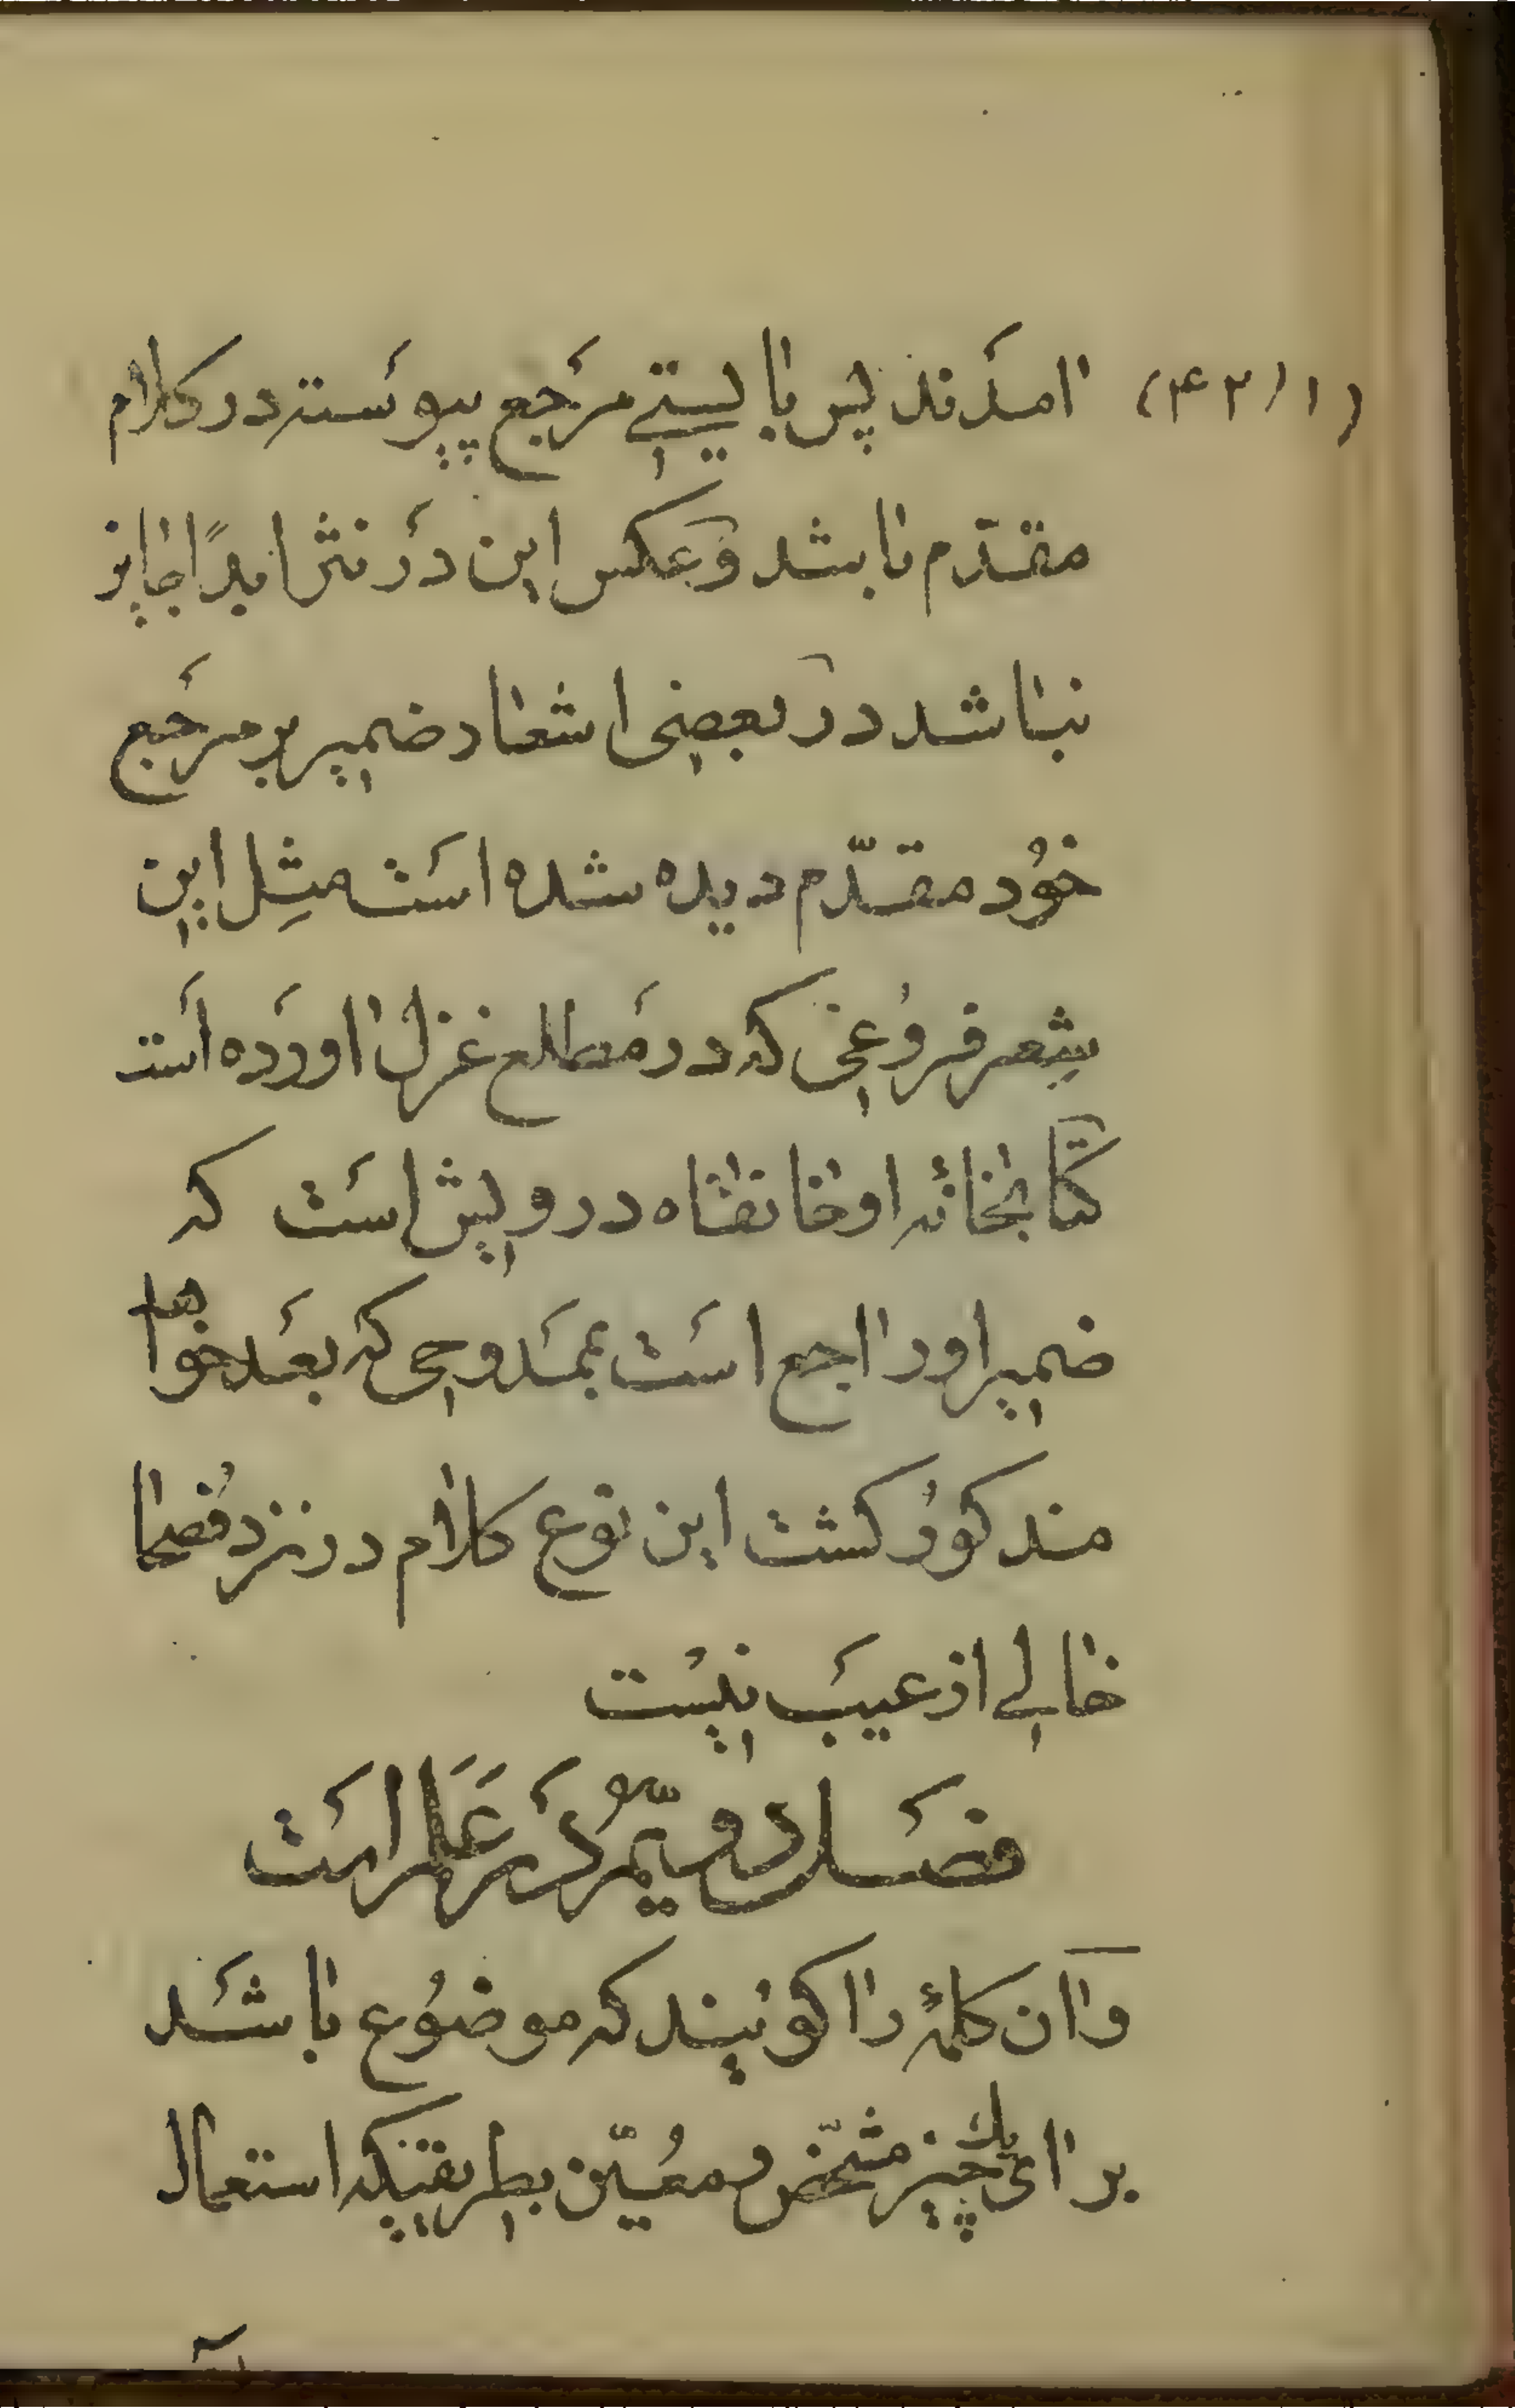 (۴۲/۱) امدند پس بایستے مرَجع پیوَسته در کلام
مقدّم باشد وَعکس این دَر نثر ابدًا جایز
نباشد در بعضی اشعار ضمیر بر مرَجع
خوُد مقدّم دیده شده اسَت مثِل این
شِعر فروُغی که در مَطلع غزل اورَده اسَت
کتابخانهٔ او خانقاه درویش اسَت که
ضمیر او راجع اسَت بممَدوحی که بعَد خواهد
مذکوُر کشت این نوع کلام در نزد فُصحا
خالے از عیَب نیسْت
فصَل دویّمُ دَر عَلَم اسَت
وَان کلمهٔ را کویٔند که موضوُع باشَد
برای یك چیز مشخّص و معُیّن بطریقیکه استعمال